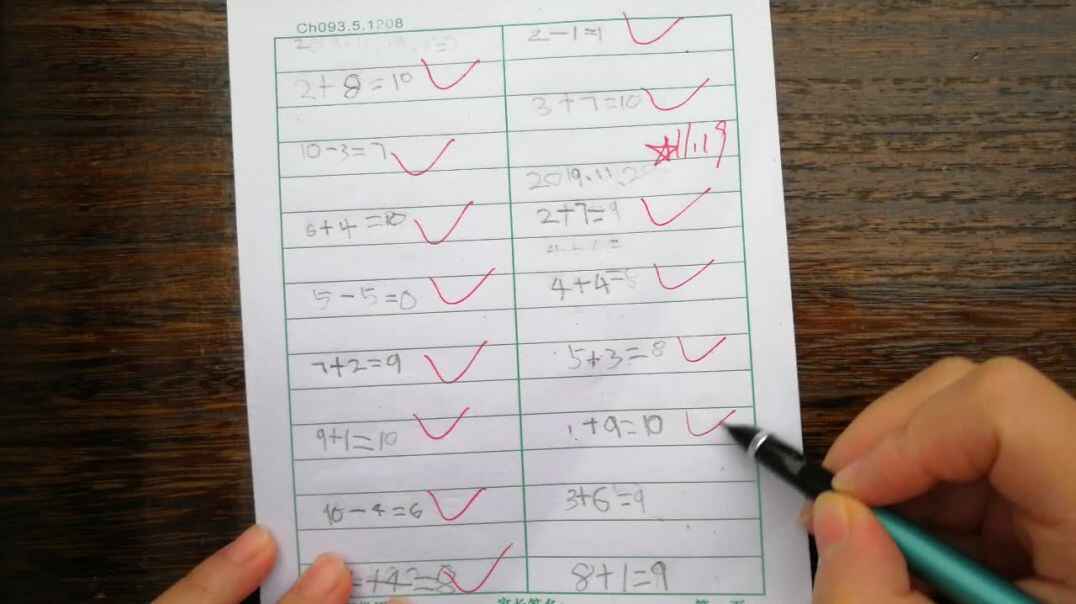 Ch093.5.1208
2+8=10
10-3=7
6+4=10
5-5=0
7+2=9
9+1=10
10-4=6
2-1=1
3+7=10
11.19
2019.11.2
2+7=9
4+4=8
5+3=8
1+9=10
3+6=9
8+1=9